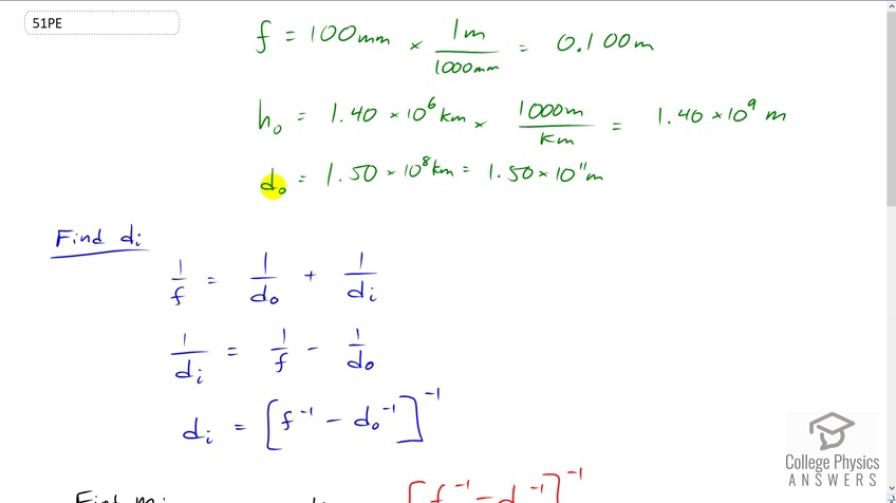 51PE
f = 100mm × 1m/1000mm = 0.100m
h₀ = 1.40 × 10⁶ km × 1000m/km = 1.40 × 10⁹ m
d₀ = 1.50 × 10⁸ km = 1.50 × 10¹¹ m
Find dᵢ
1/f = 1/d₀ + 1/dᵢ
1/dᵢ = 1/f - 1/d₀
dᵢ = [f⁻¹ - d₀⁻¹]⁻¹
College Physics
ANSWERS
[f⁻¹ - d⁻¹]⁻¹